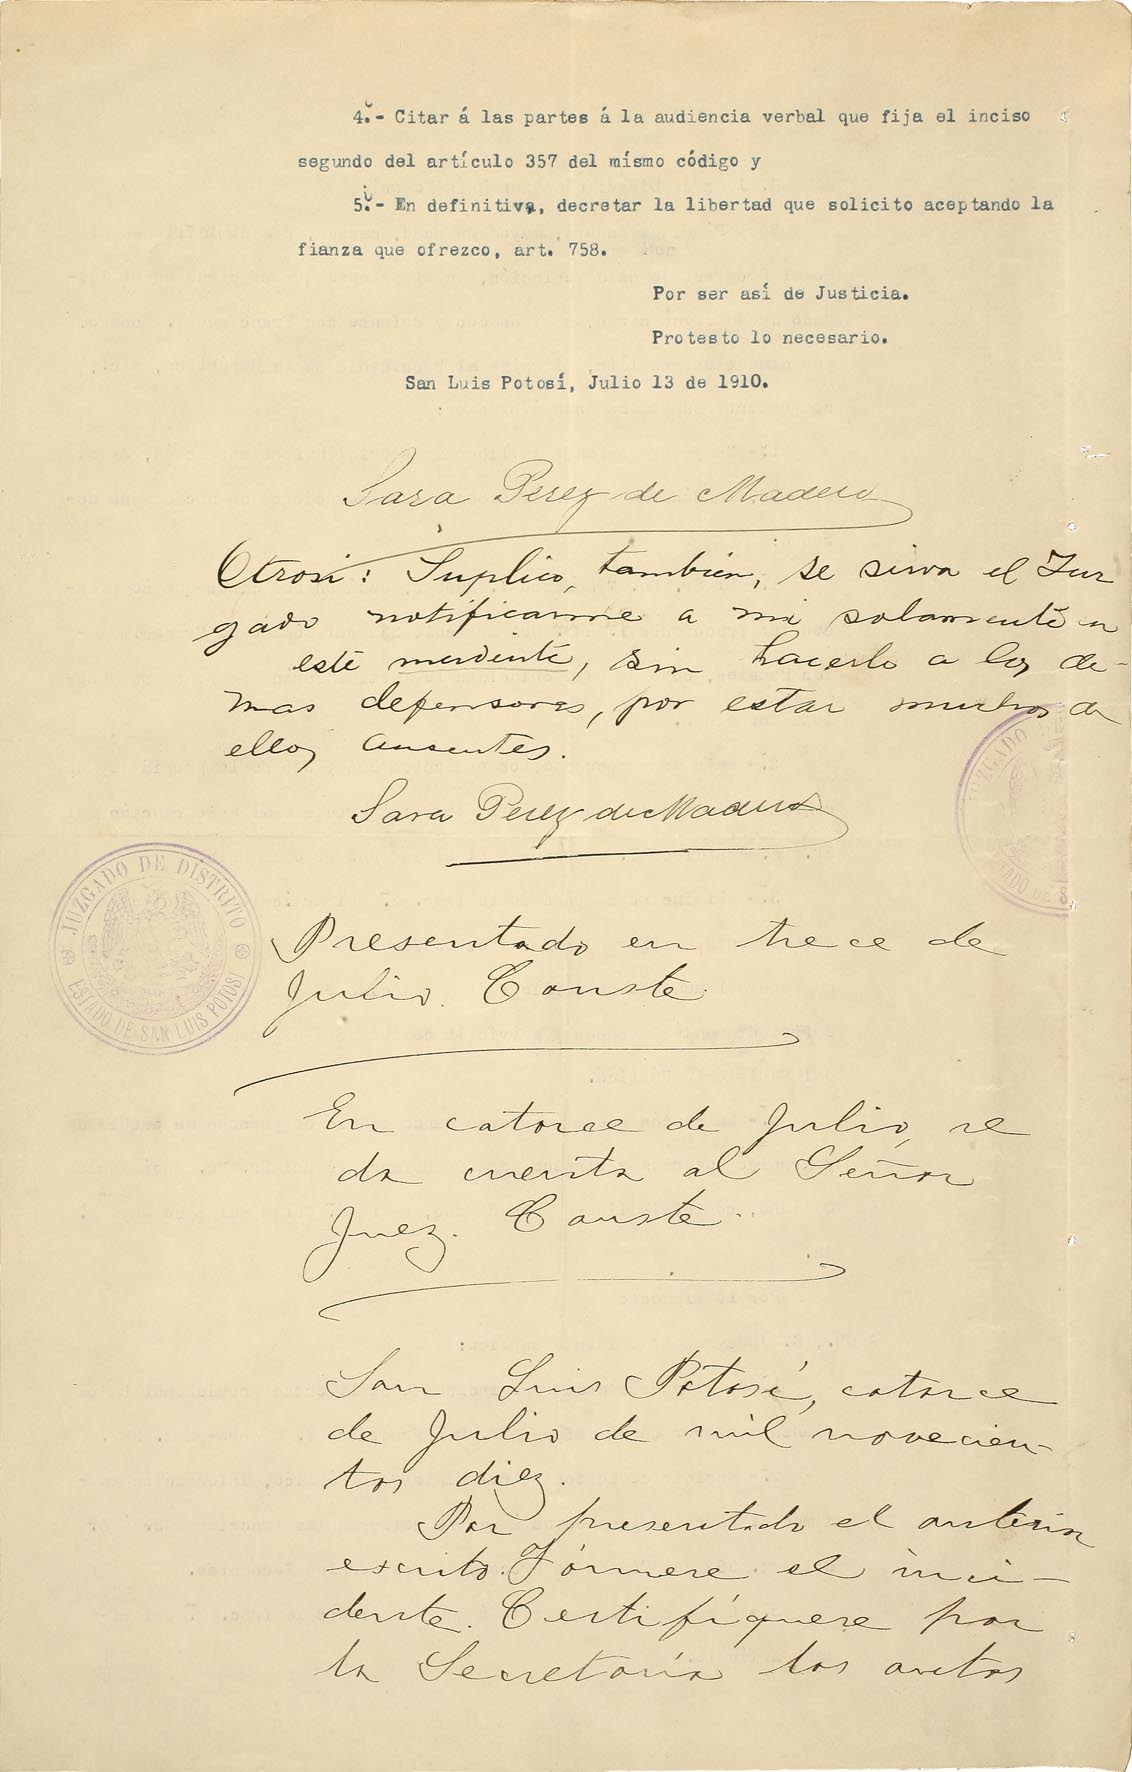 4º.- Citar á las partes á la audiencia verbal que fija el inciso
segundo del artículo 357 del mísmo código y
5º.- En definitiva, decretar la libertad que solicito aceptando la
fianza que ofrezco, art. 758.
Por ser así de Justicia.
Protesto lo necesario.
San Luis Potosí, Julio 13 de 1910.
Sara Perez de Madero
Otrosi: Suplico, también, se sirva el Juz
gado notificarme a mi solamente en
este incidente, sin hacerlo a los de-
mas defensores, por estar muchos de
ellos ausentes.
Sara Perez de Madero
JUZGADO DE DISTRITO
ESTADO DE SAN LUIS POTOSI
JUZGADO
Presentado en trece de
Julio. Conste.
En catorce de Julio, se
da cuenta al Señor
Juez. Conste.
San Luis Potosí, catorce
de Julio de mil novecien-
tos diez.
Por presentado el anterior
escrito. Fórmese el inci-
dente. Certifíquese por
la Secretaría los autos